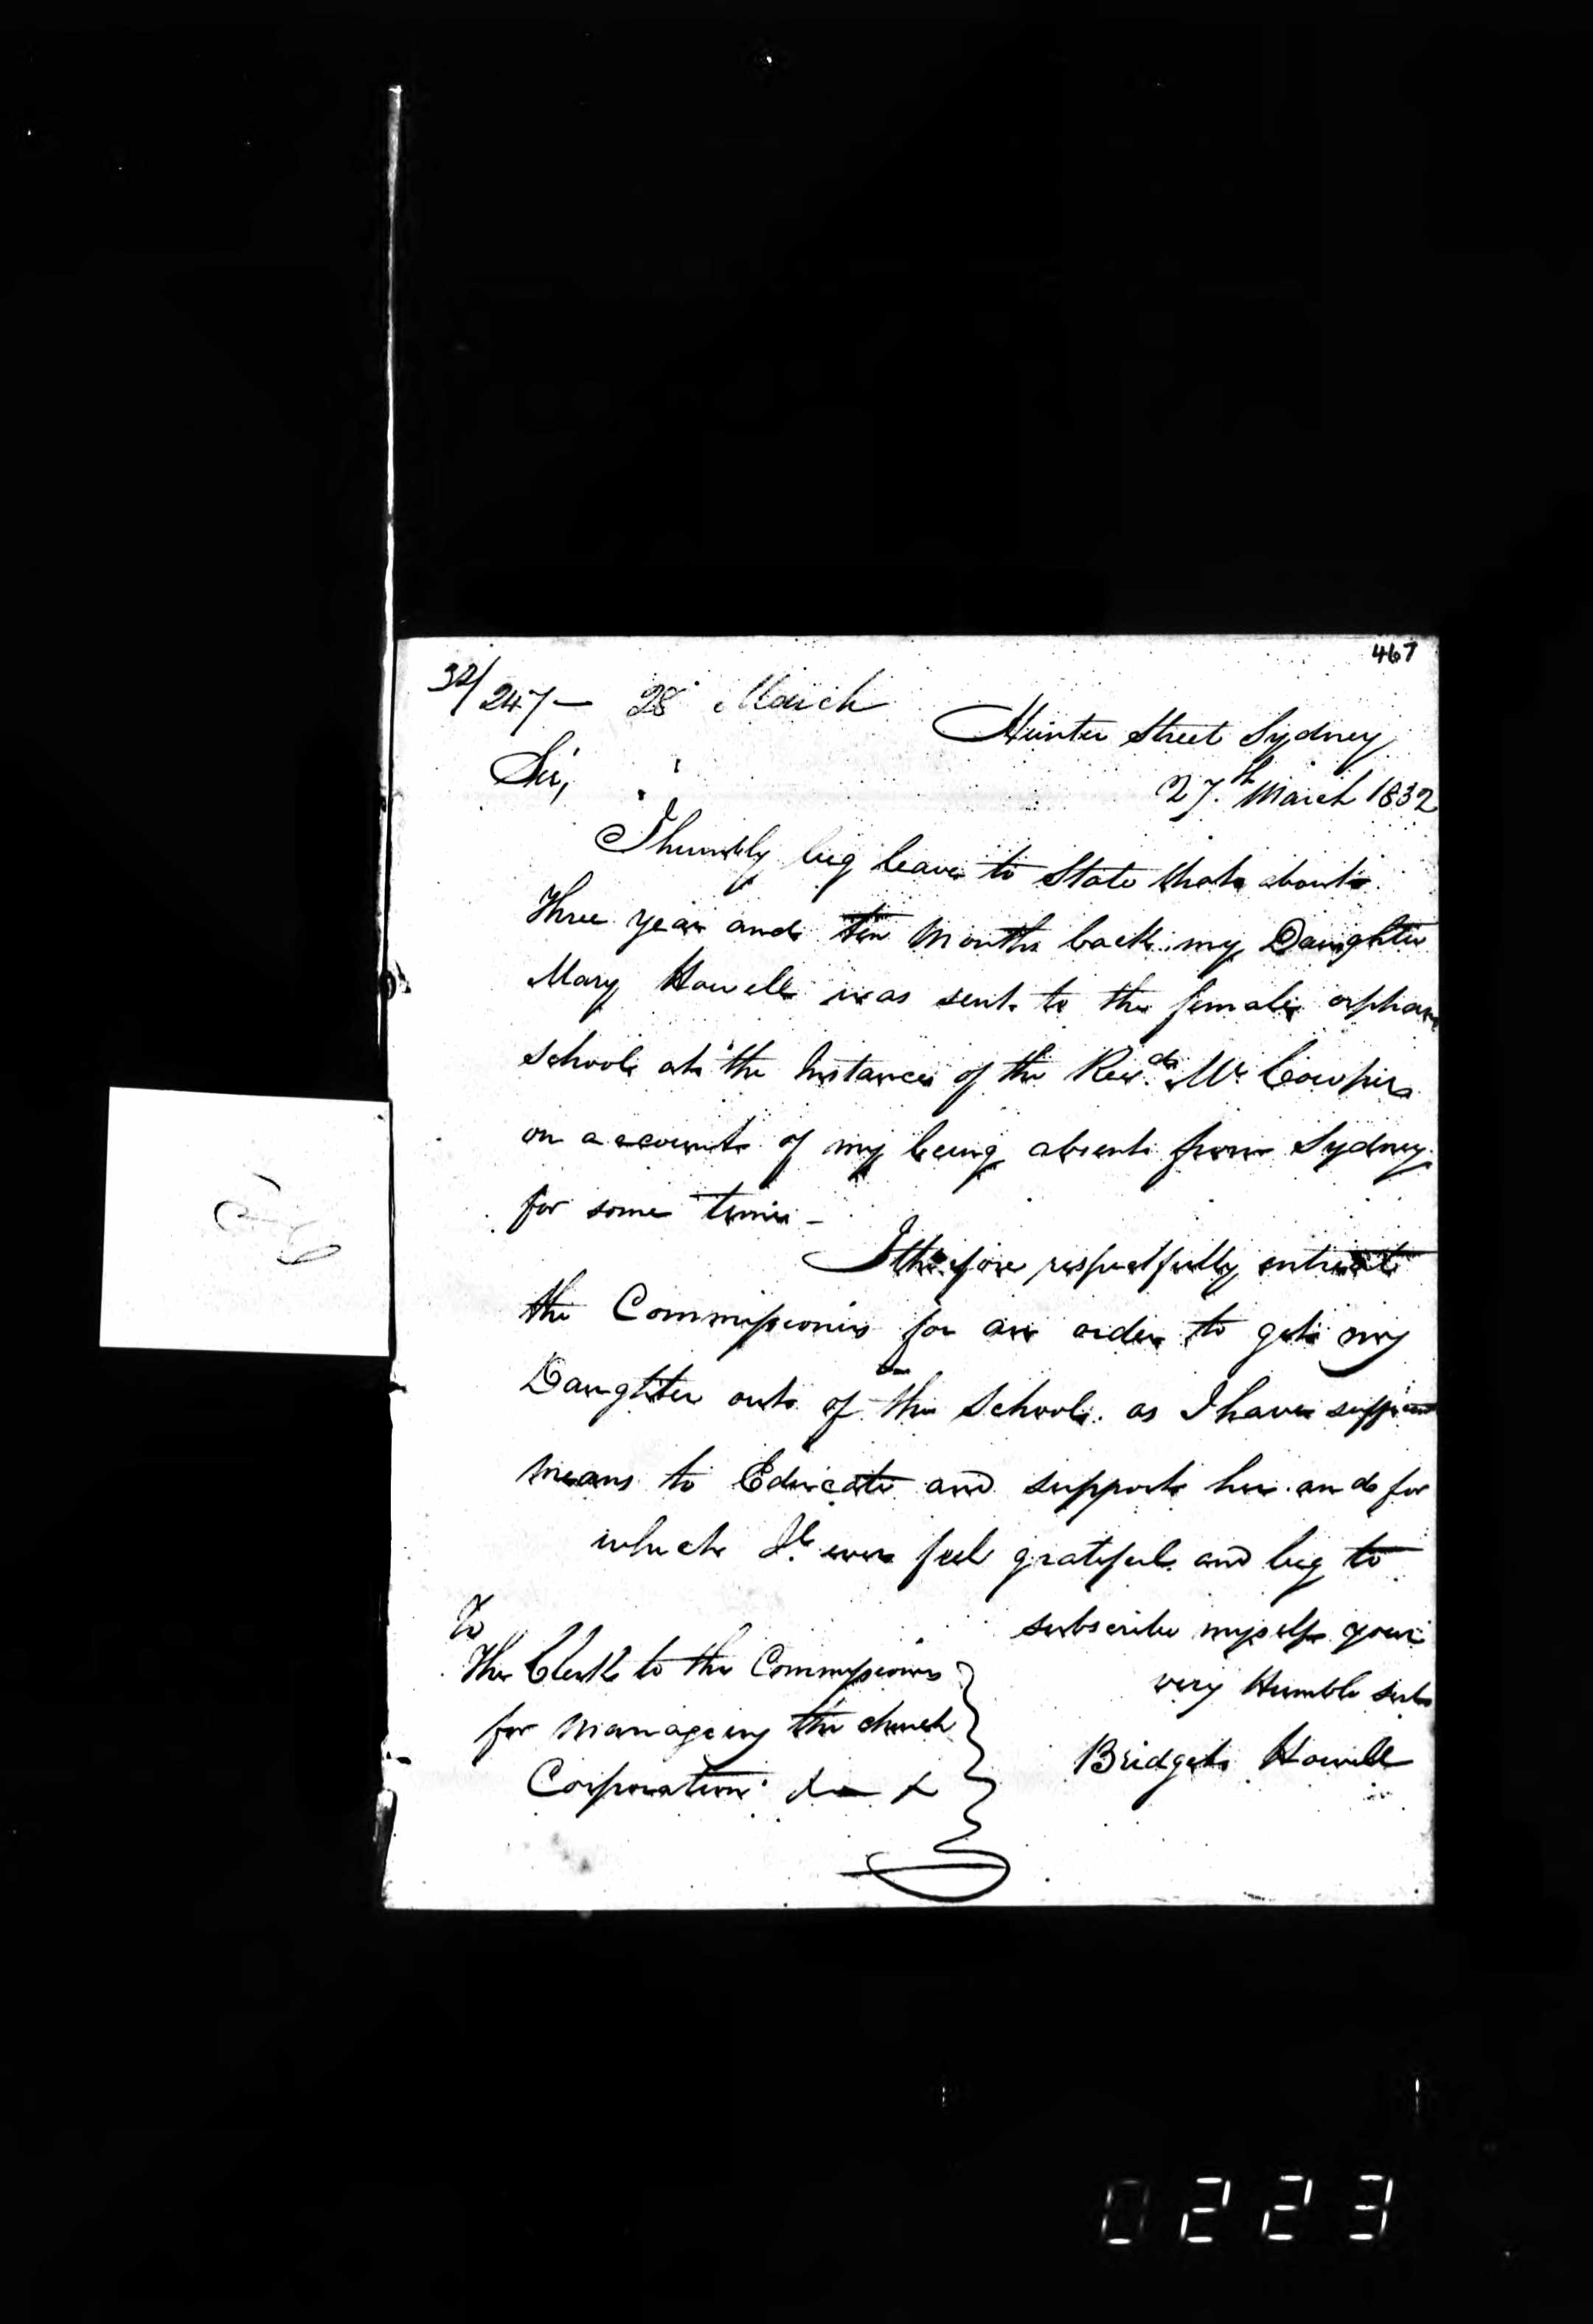 467
32/247 — 28 March
Hunter Street Sydney
27th March 1832
Sir,
I humbly beg leave to State that about
Three year and ten Months back my Daughter
Mary Howell was sent to the female orphan
School at the Instance of the Revd. Mr Cowper
on account of my being absent from Sydney
for some time –
I therefore respectfully entreat
the Commissioners for an order to get my
Daughter out of the School as I have sufficient
means to Educate and support her and for
which I'l ever feel grateful and beg to
subscribe myself your
very Humble Servt
Bridget Howell
To
The Clerk to the Commissioners
for Manageing the church
Corporation &c &
0223